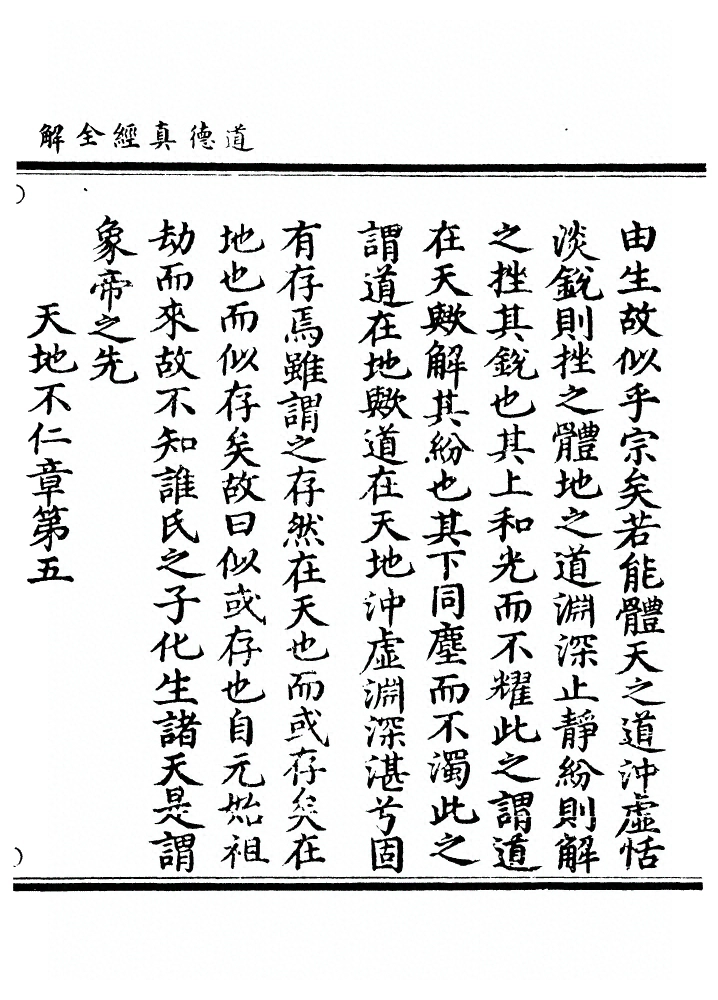 道德真經全解
由生故似乎宗矣若能體天之道沖虛恬
淡銳則挫之體地之道淵深止靜紛則解
之挫其銳也其上和光而不耀此之謂道
在天歟解其紛也其下同塵而不濁此之
謂道在地歟道在天地沖虛淵深湛兮固
有存焉雖謂之存然在天也而或存矣在
地也而似存矣故曰似或存也自元始祖
劫而來故不知誰氏之子化生諸天是謂
象帝之先
天地不仁章第五